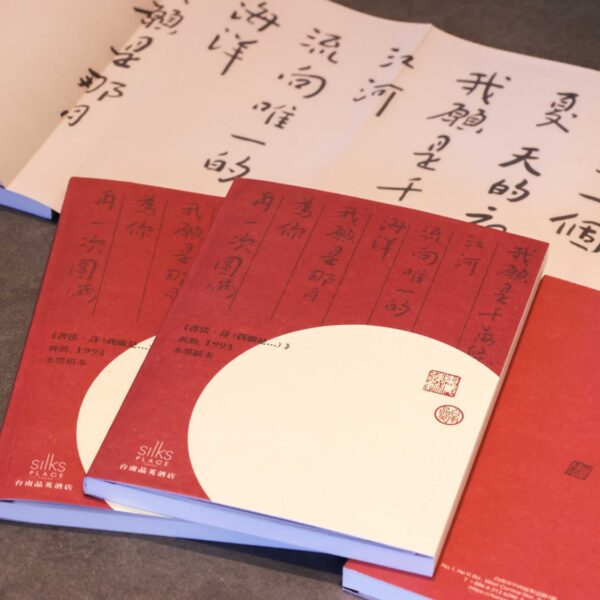 一個
夏天的
我願是千
江河
流向唯一的
海洋
願是那月
我願是千萬條
江河
流向唯一的
海洋
我願是那月
為你
再一次圓滿
《書法.詩〈我願是...〉》
蔣勳, 1993
水墨紙本
silks
PLACE
台南晶英酒店
我願是那
為你
再一次圓滿
《書法.詩〈我願是...
蔣勳, 1993
水墨紙本
silks
PLACE
台南晶英酒店
No.1, He Yi Rd., West Central Dist.